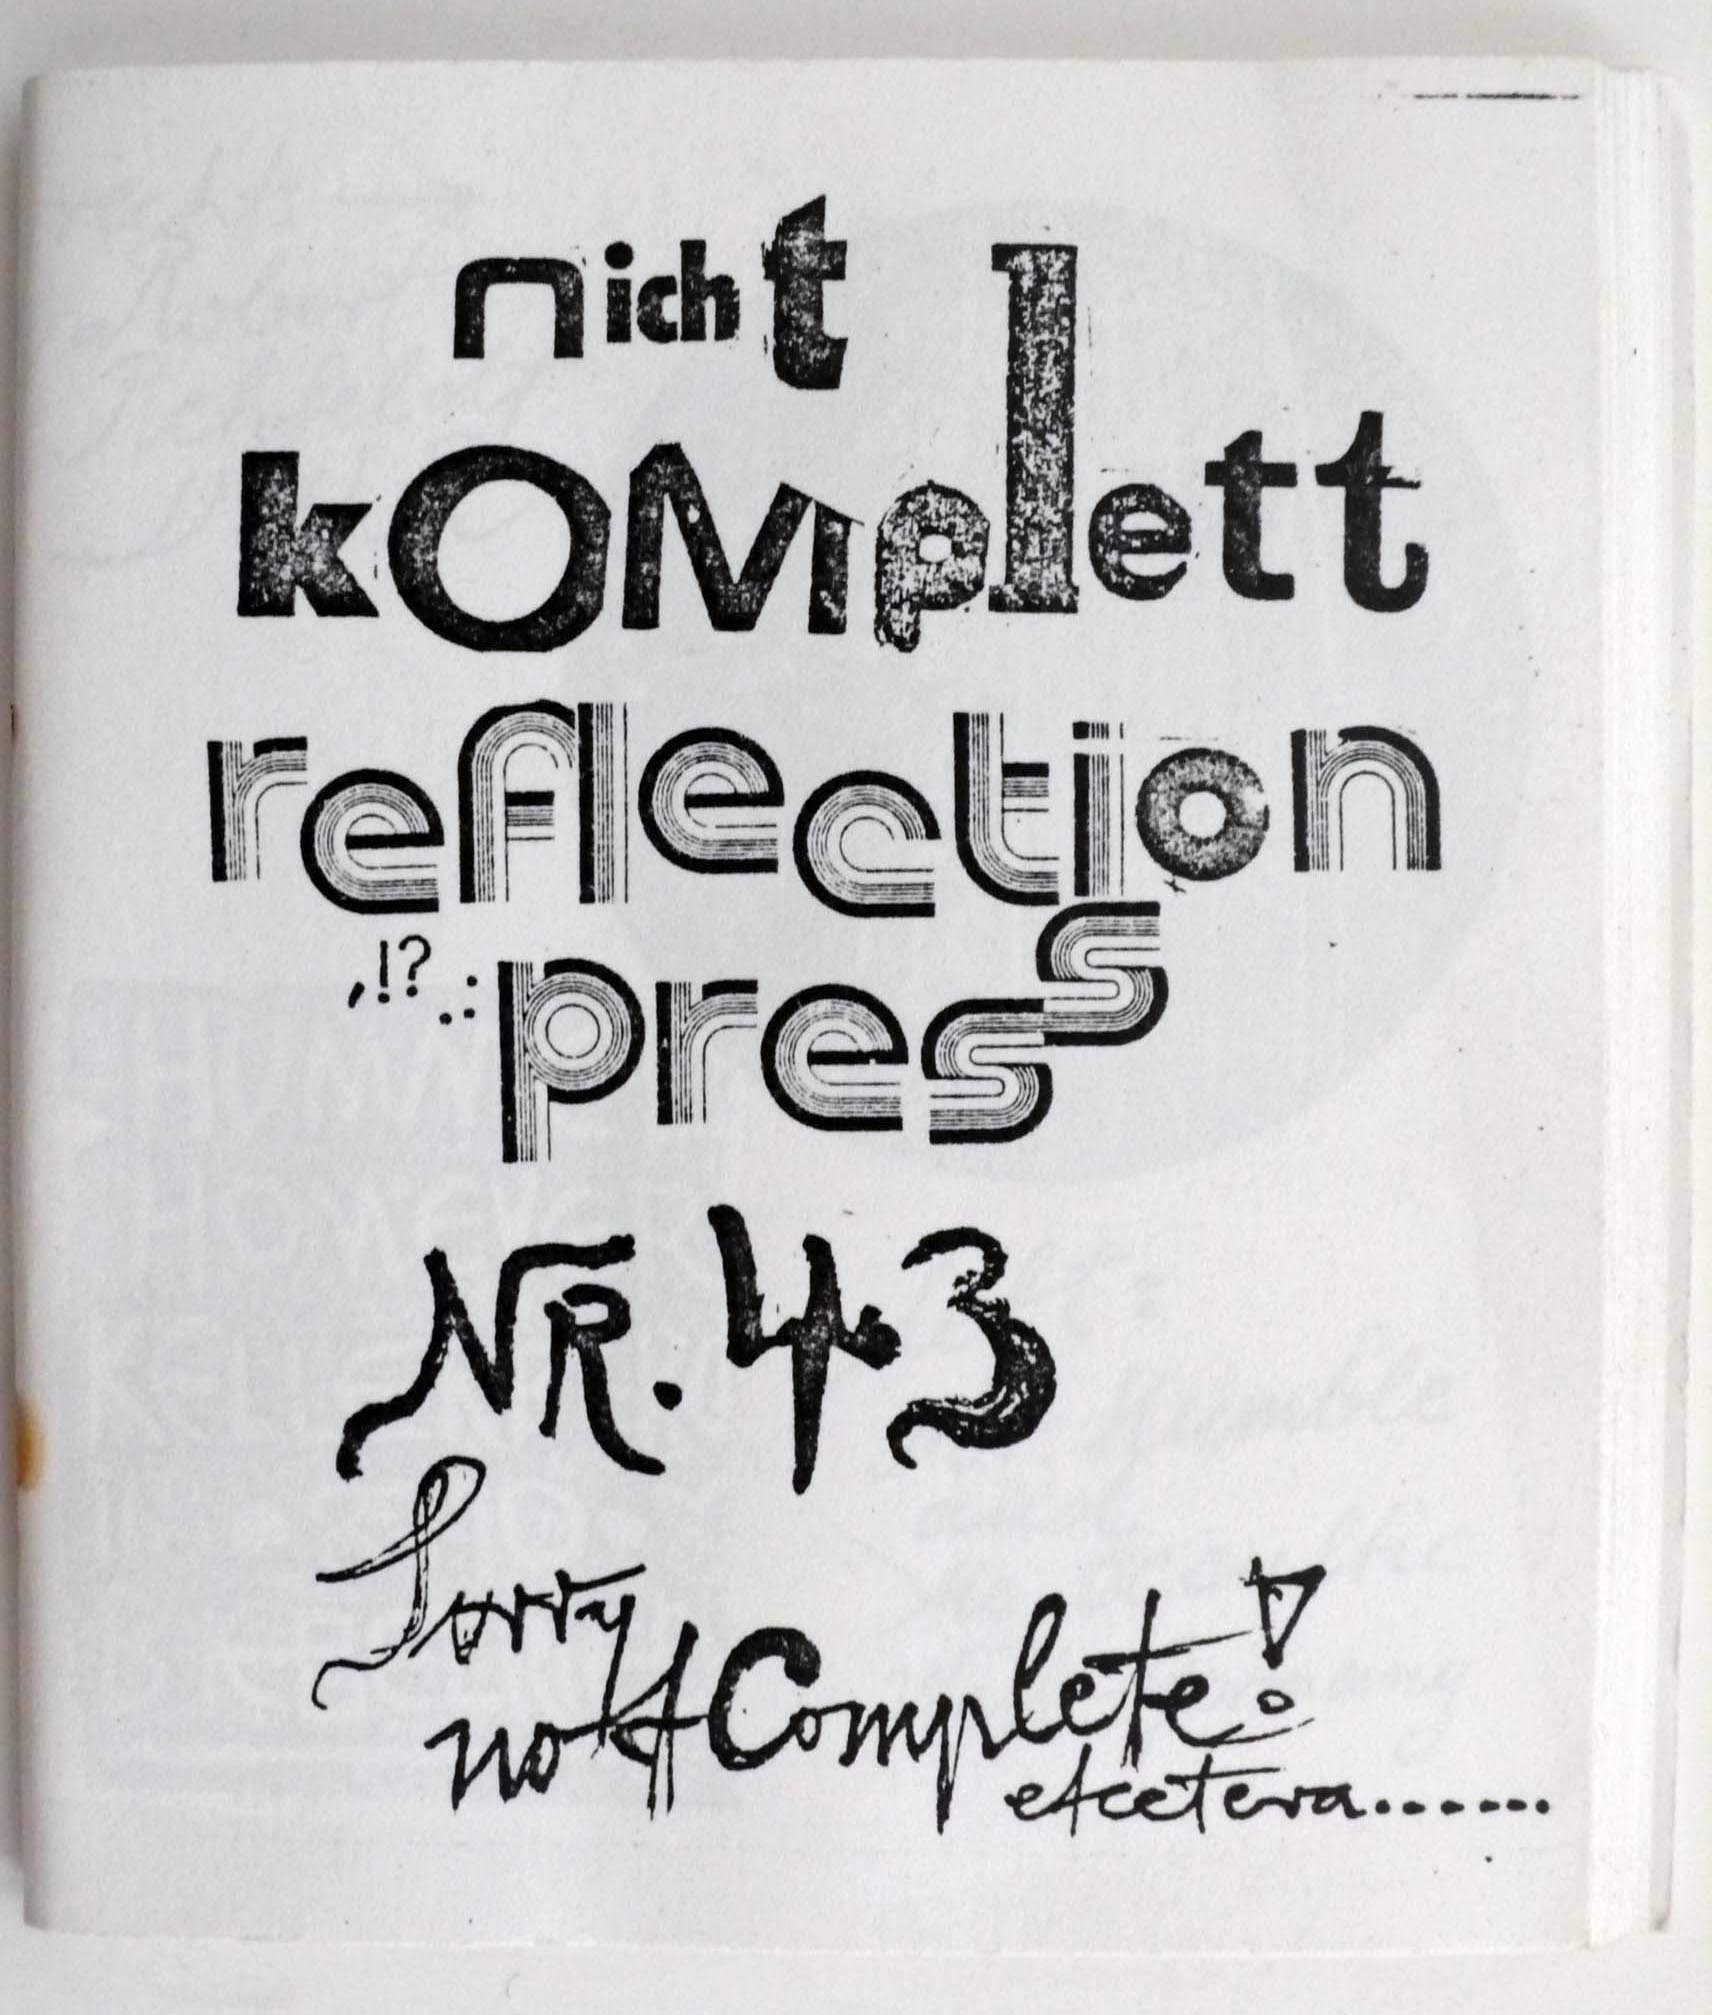 nicht
kOMplett
reflection
,!?.: press
NR. 43
Sorry
not Complete!
etcetera.......